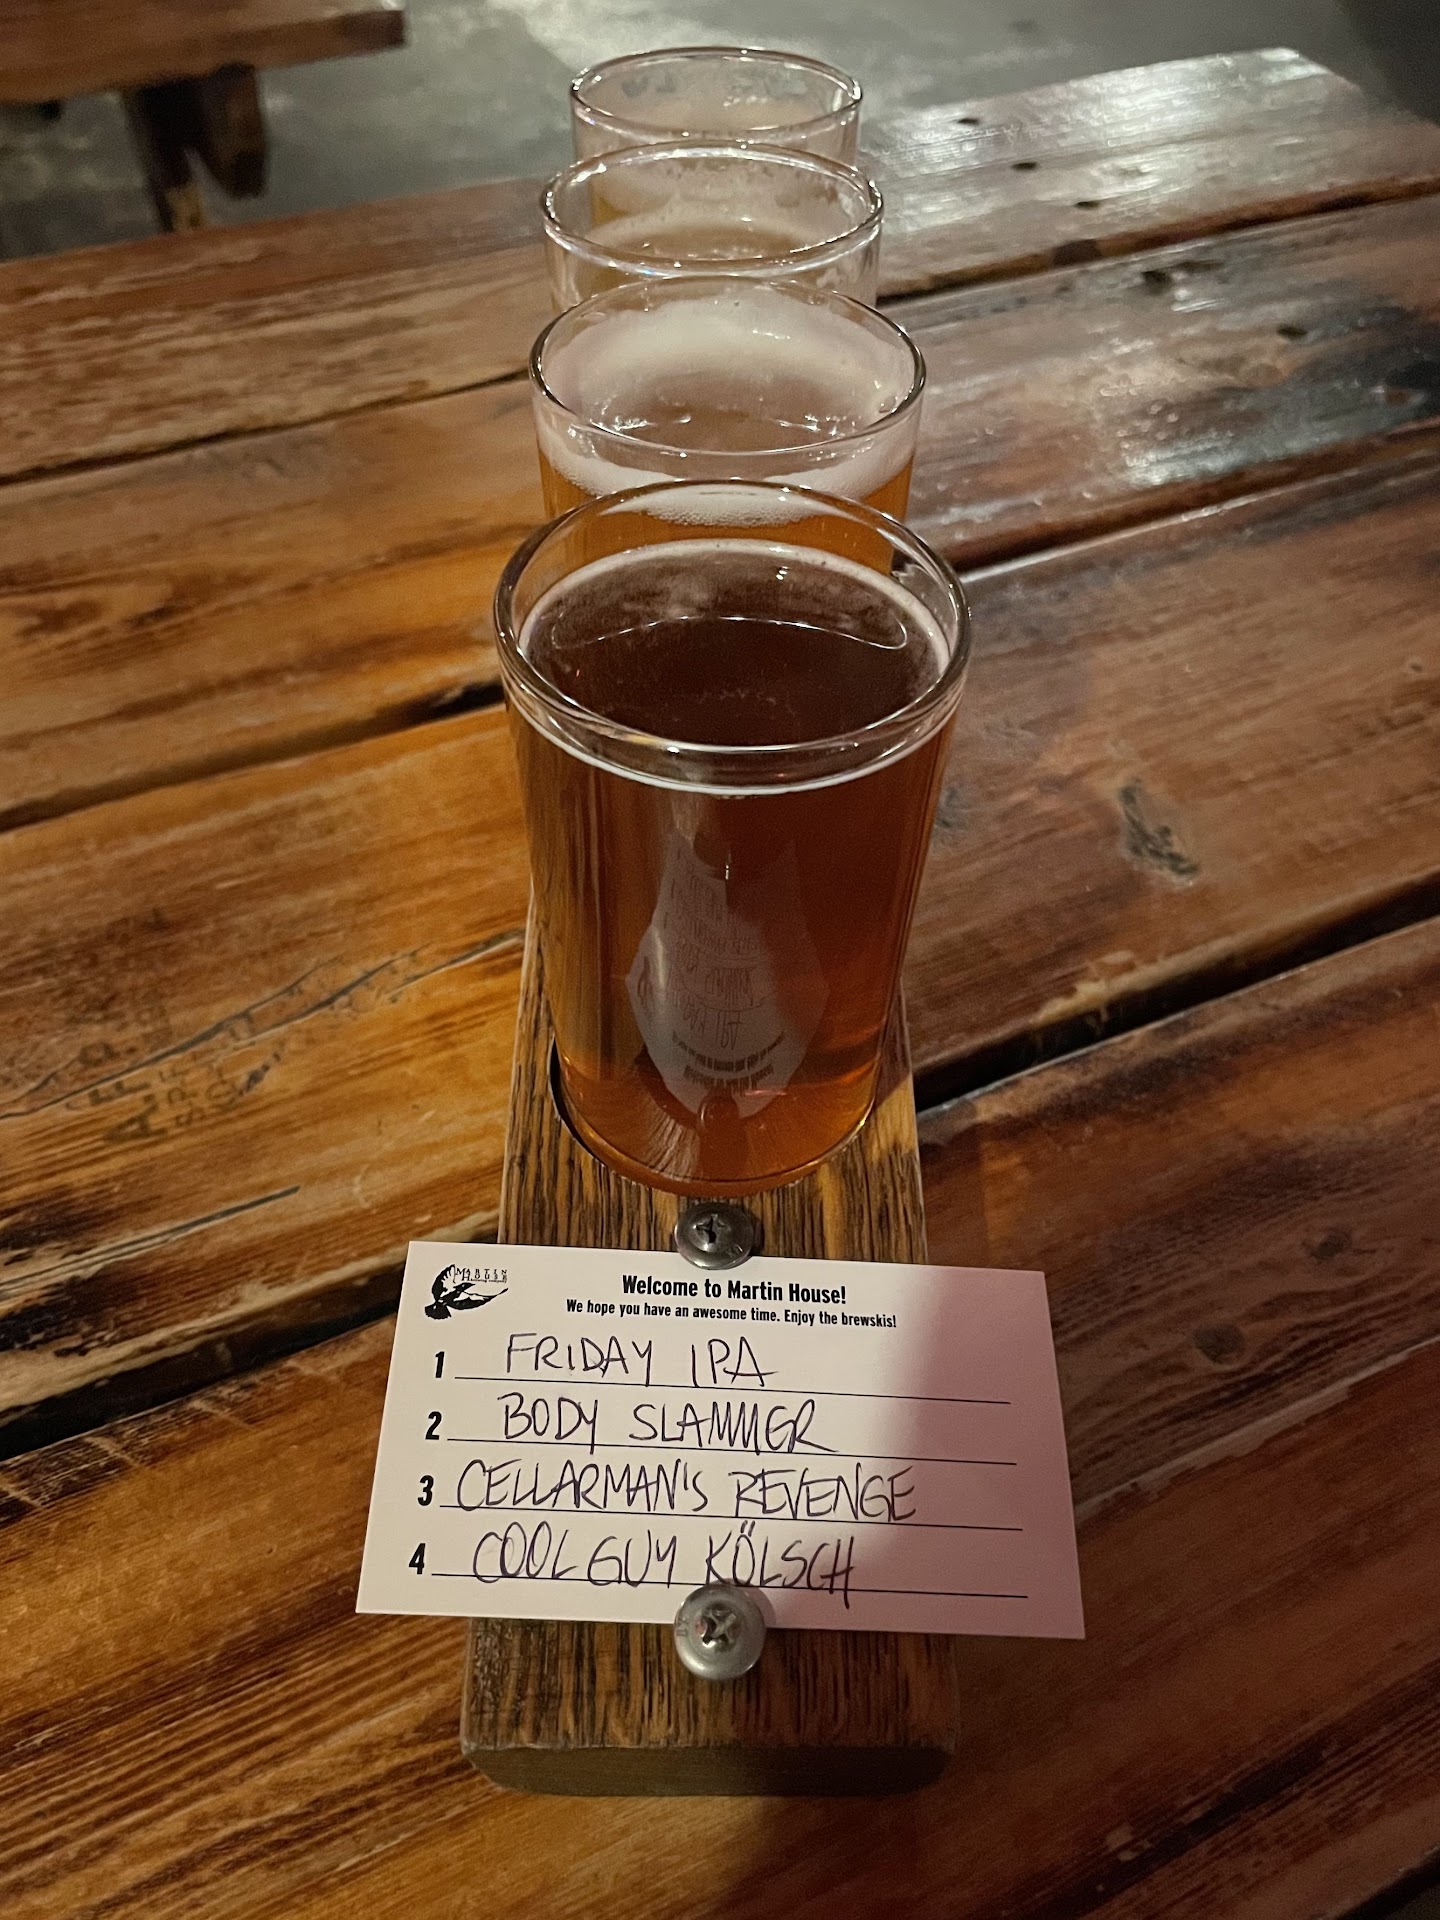 MARTIN
HOUSE
Welcome to Martin House!
We hope you have an awesome time. Enjoy the brewskis!
1 FRIDAY IPA
2 BODY SLAMMER
3 CELLARMAN'S REVENGE
4 COOL GUY KÖLSCH